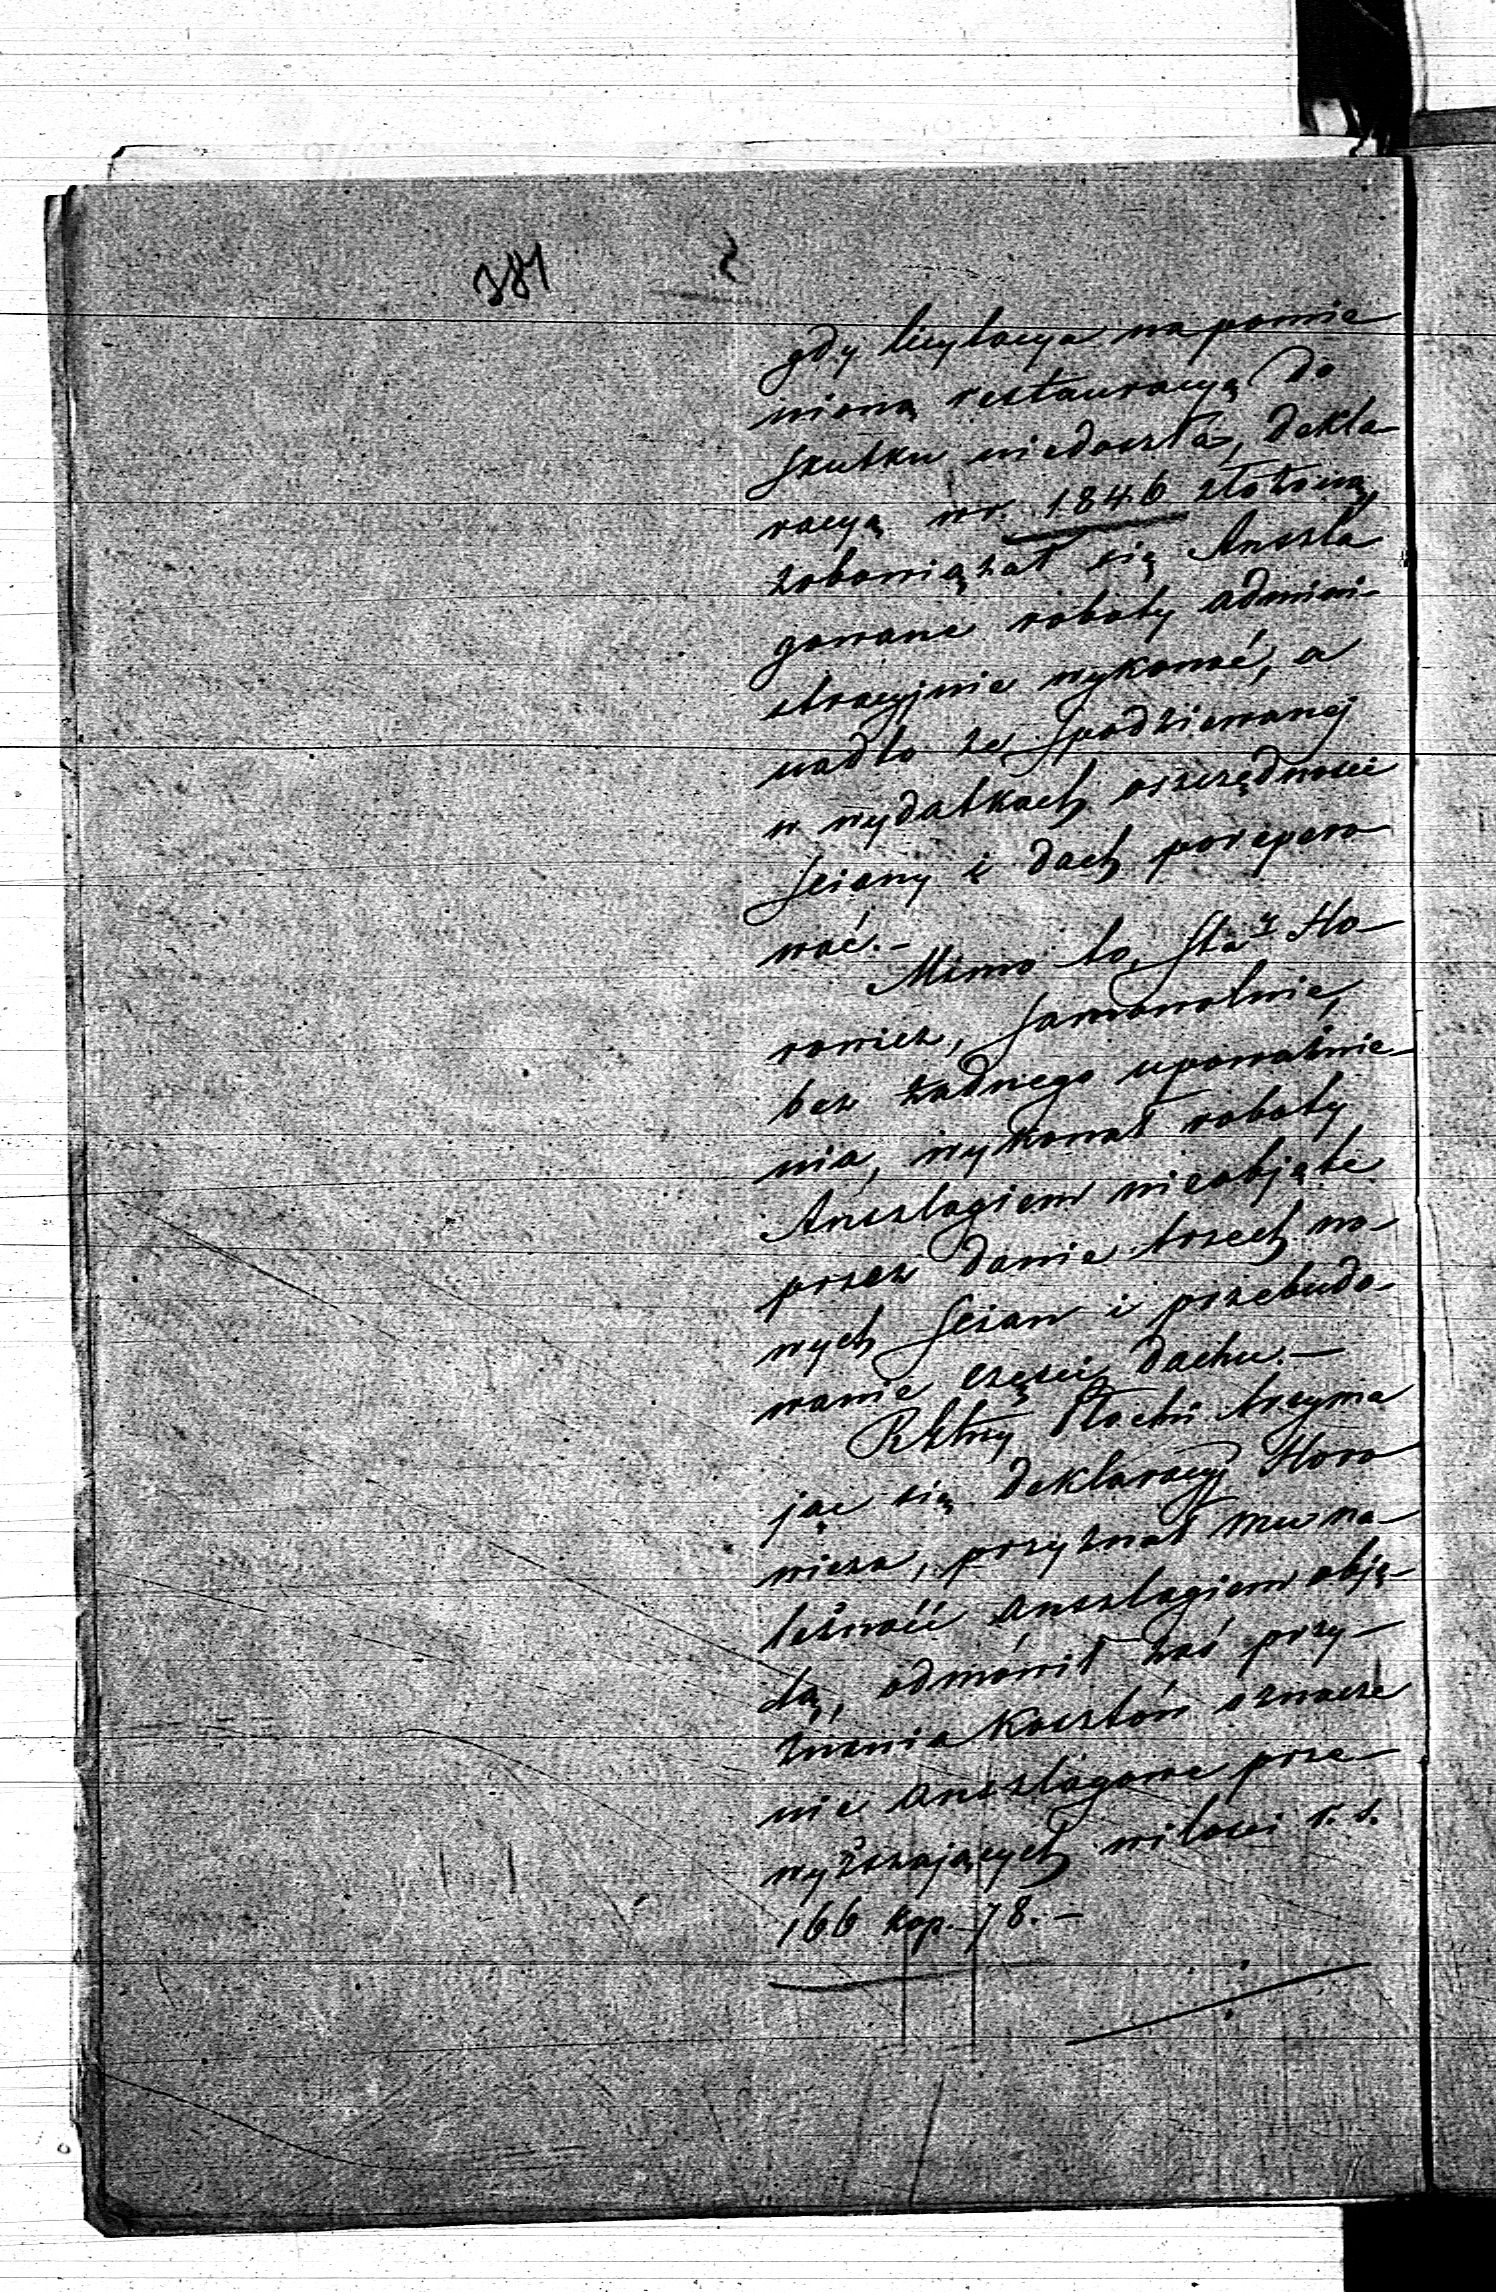 381 2
gdy licytacya na pomie
nioną restauracyą do
skutku niedoszła, dekla-
racyą w r. 1846 złożoną
zobowiązał się Anszla
gowane roboty admini-
stracyjnie wykonać, a
nadto ze spodziewanej
w wydatkach oszczędności
ściany i dach porepero
wać.-
Mimo to, Sta Ho-
rowicz, samowolnie,
bez żadnego upoważnie-
nia, wykonał roboty
Anszlagiem nieobjęte
przez danie trzech no-
wych ścian i przebudo-
wanie części dachu.-
Płocki trzyma
jąc się deklaracyi Horo
wicza, przyznał mu na-
leżność anszlagiem obję-
tą, odmówił zaś przy-
znania kosztów oznacze
nie anszlagowe prze-
wyższających w ilości r. s.
166 kop. 78.-